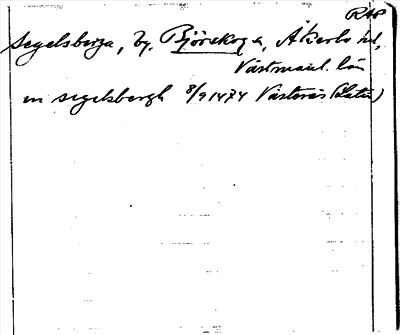 RAP
Segelsberga, by, Björskog s, Åkerbo hd,
Västmanl. län
en segelsbergh 8/9 1474 Västerås (Latin)